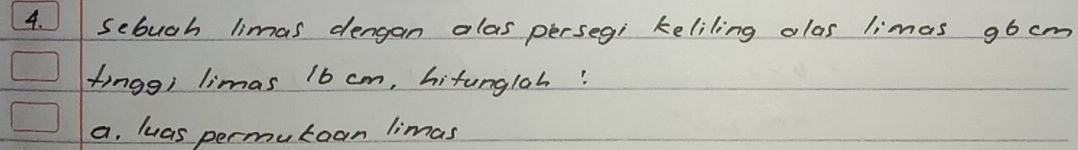 4. sebuah limas dengan alas persegi keliling alas limas 96 cm
tinggi limas 16 cm, hitunglah !
a. luas permukaan limas